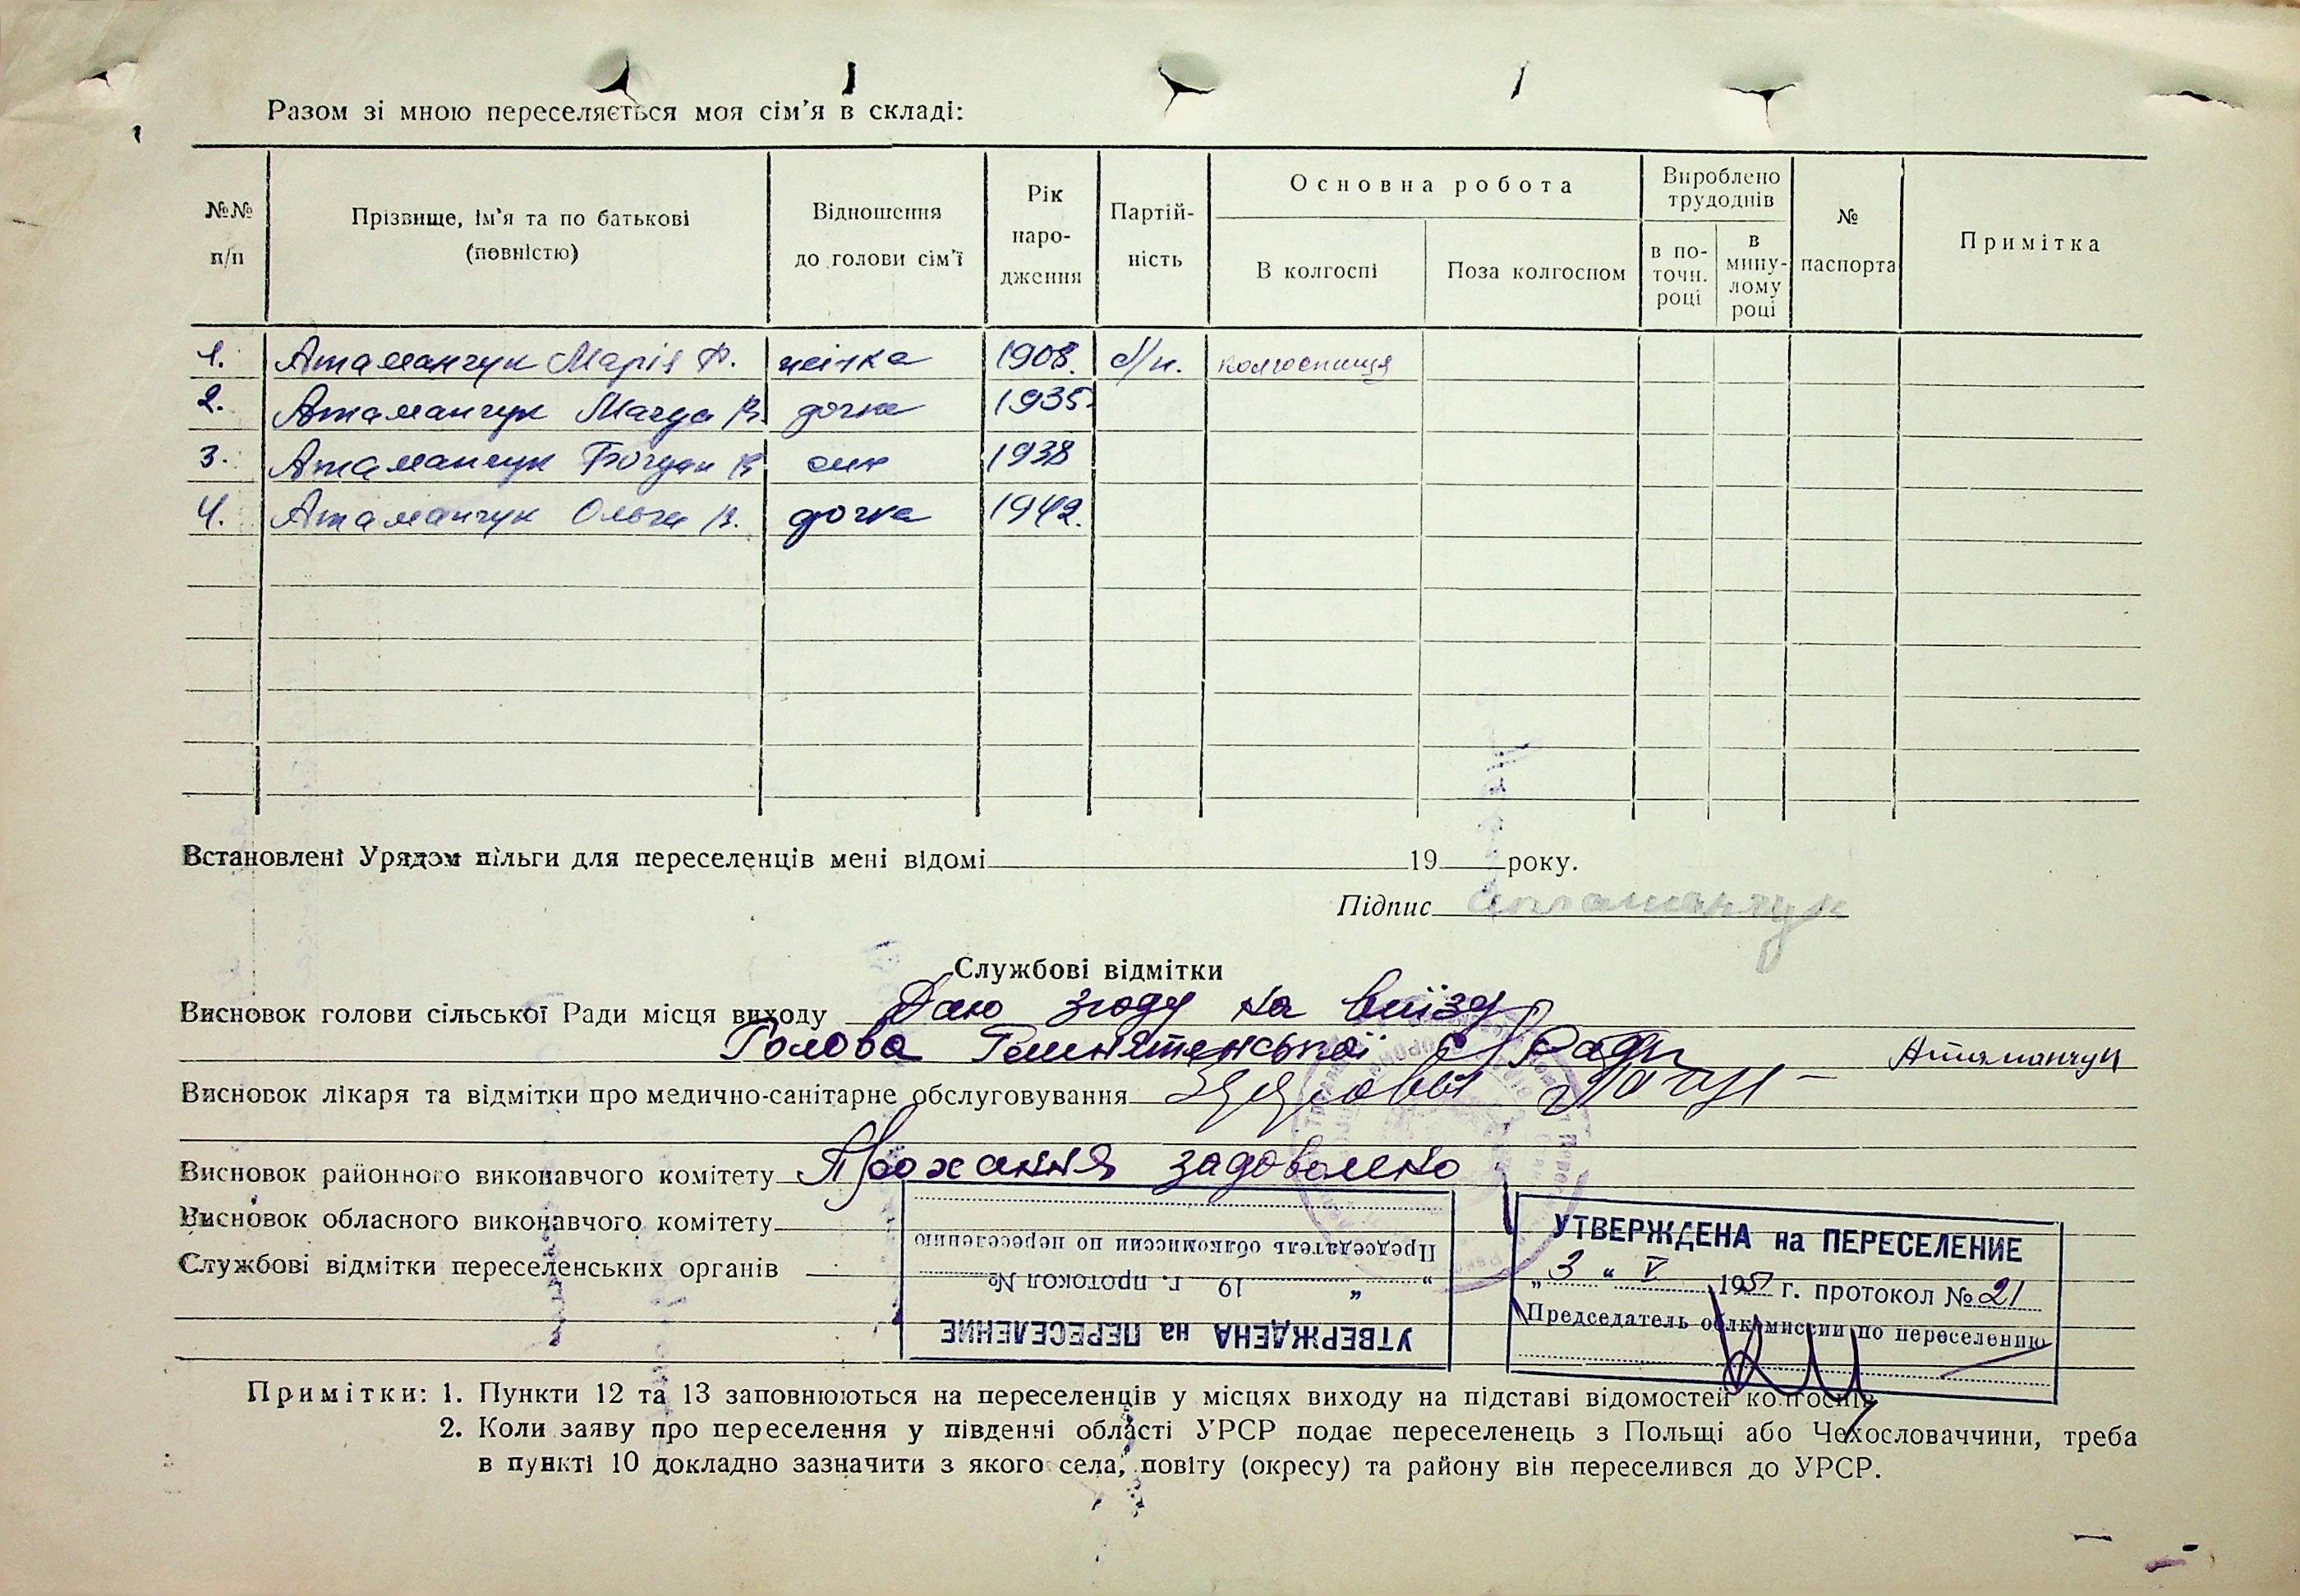 Разом зі мною переселяється моя сім'я в складі:
№№ п/п
Прізвище, ім'я та по батькові (повністю)
Відношення до голови сім'ї
Рік наро-дження
Партій-ність
Основна робота
В колгоспі
Поза колгоспом
Вироблено трудоднів
в по-точн. році
в мину-лому році
№ паспорта
Примітка
1. Атаманчук Марія Ф. жінка 1908. б/п. колгоспниця
2. Атаманчук Магда В. дочка 1935.
3. Атаманчук Богдан В. син 1938
4. Атаманчук Ольга В. дочка 1942.
Встановлені Урядом пільги для переселенців мені відомі 19 року.
Підпис Атаманчук
Службові відмітки
Висновок голови сільської Ради місця виходу Даю згоду на виїзд
Голова с/Ради Атаманчук
Висновок лікаря та відмітки про медично-санітарне обслуговування Здорові
Висновок районного виконавчого комітету Прохання задоволено
Висновок обласного виконавчого комітету
Службові відмітки переселенських органів
УТВЕРЖДЕНА на ПЕРЕСЕЛЕНИЕ
" " 19 г. протокол №
Председатель облкомиссии по переселению
УТВЕРЖДЕНА на ПЕРЕСЕЛЕНИЕ
„ 3 " V 1951 г. протокол № 21
Председатель облкомиссии по переселению
Примітки: 1. Пункти 12 та 13 заповнюються на переселенців у місцях виходу на підставі відомостей колгоспів.
2. Коли заяву про переселення у південні області УРСР подає переселенець з Польщі або Чехословаччини, треба
в пункті 10 докладно зазначити з якого села, повіту (окресу) та району він переселився до УРСР.